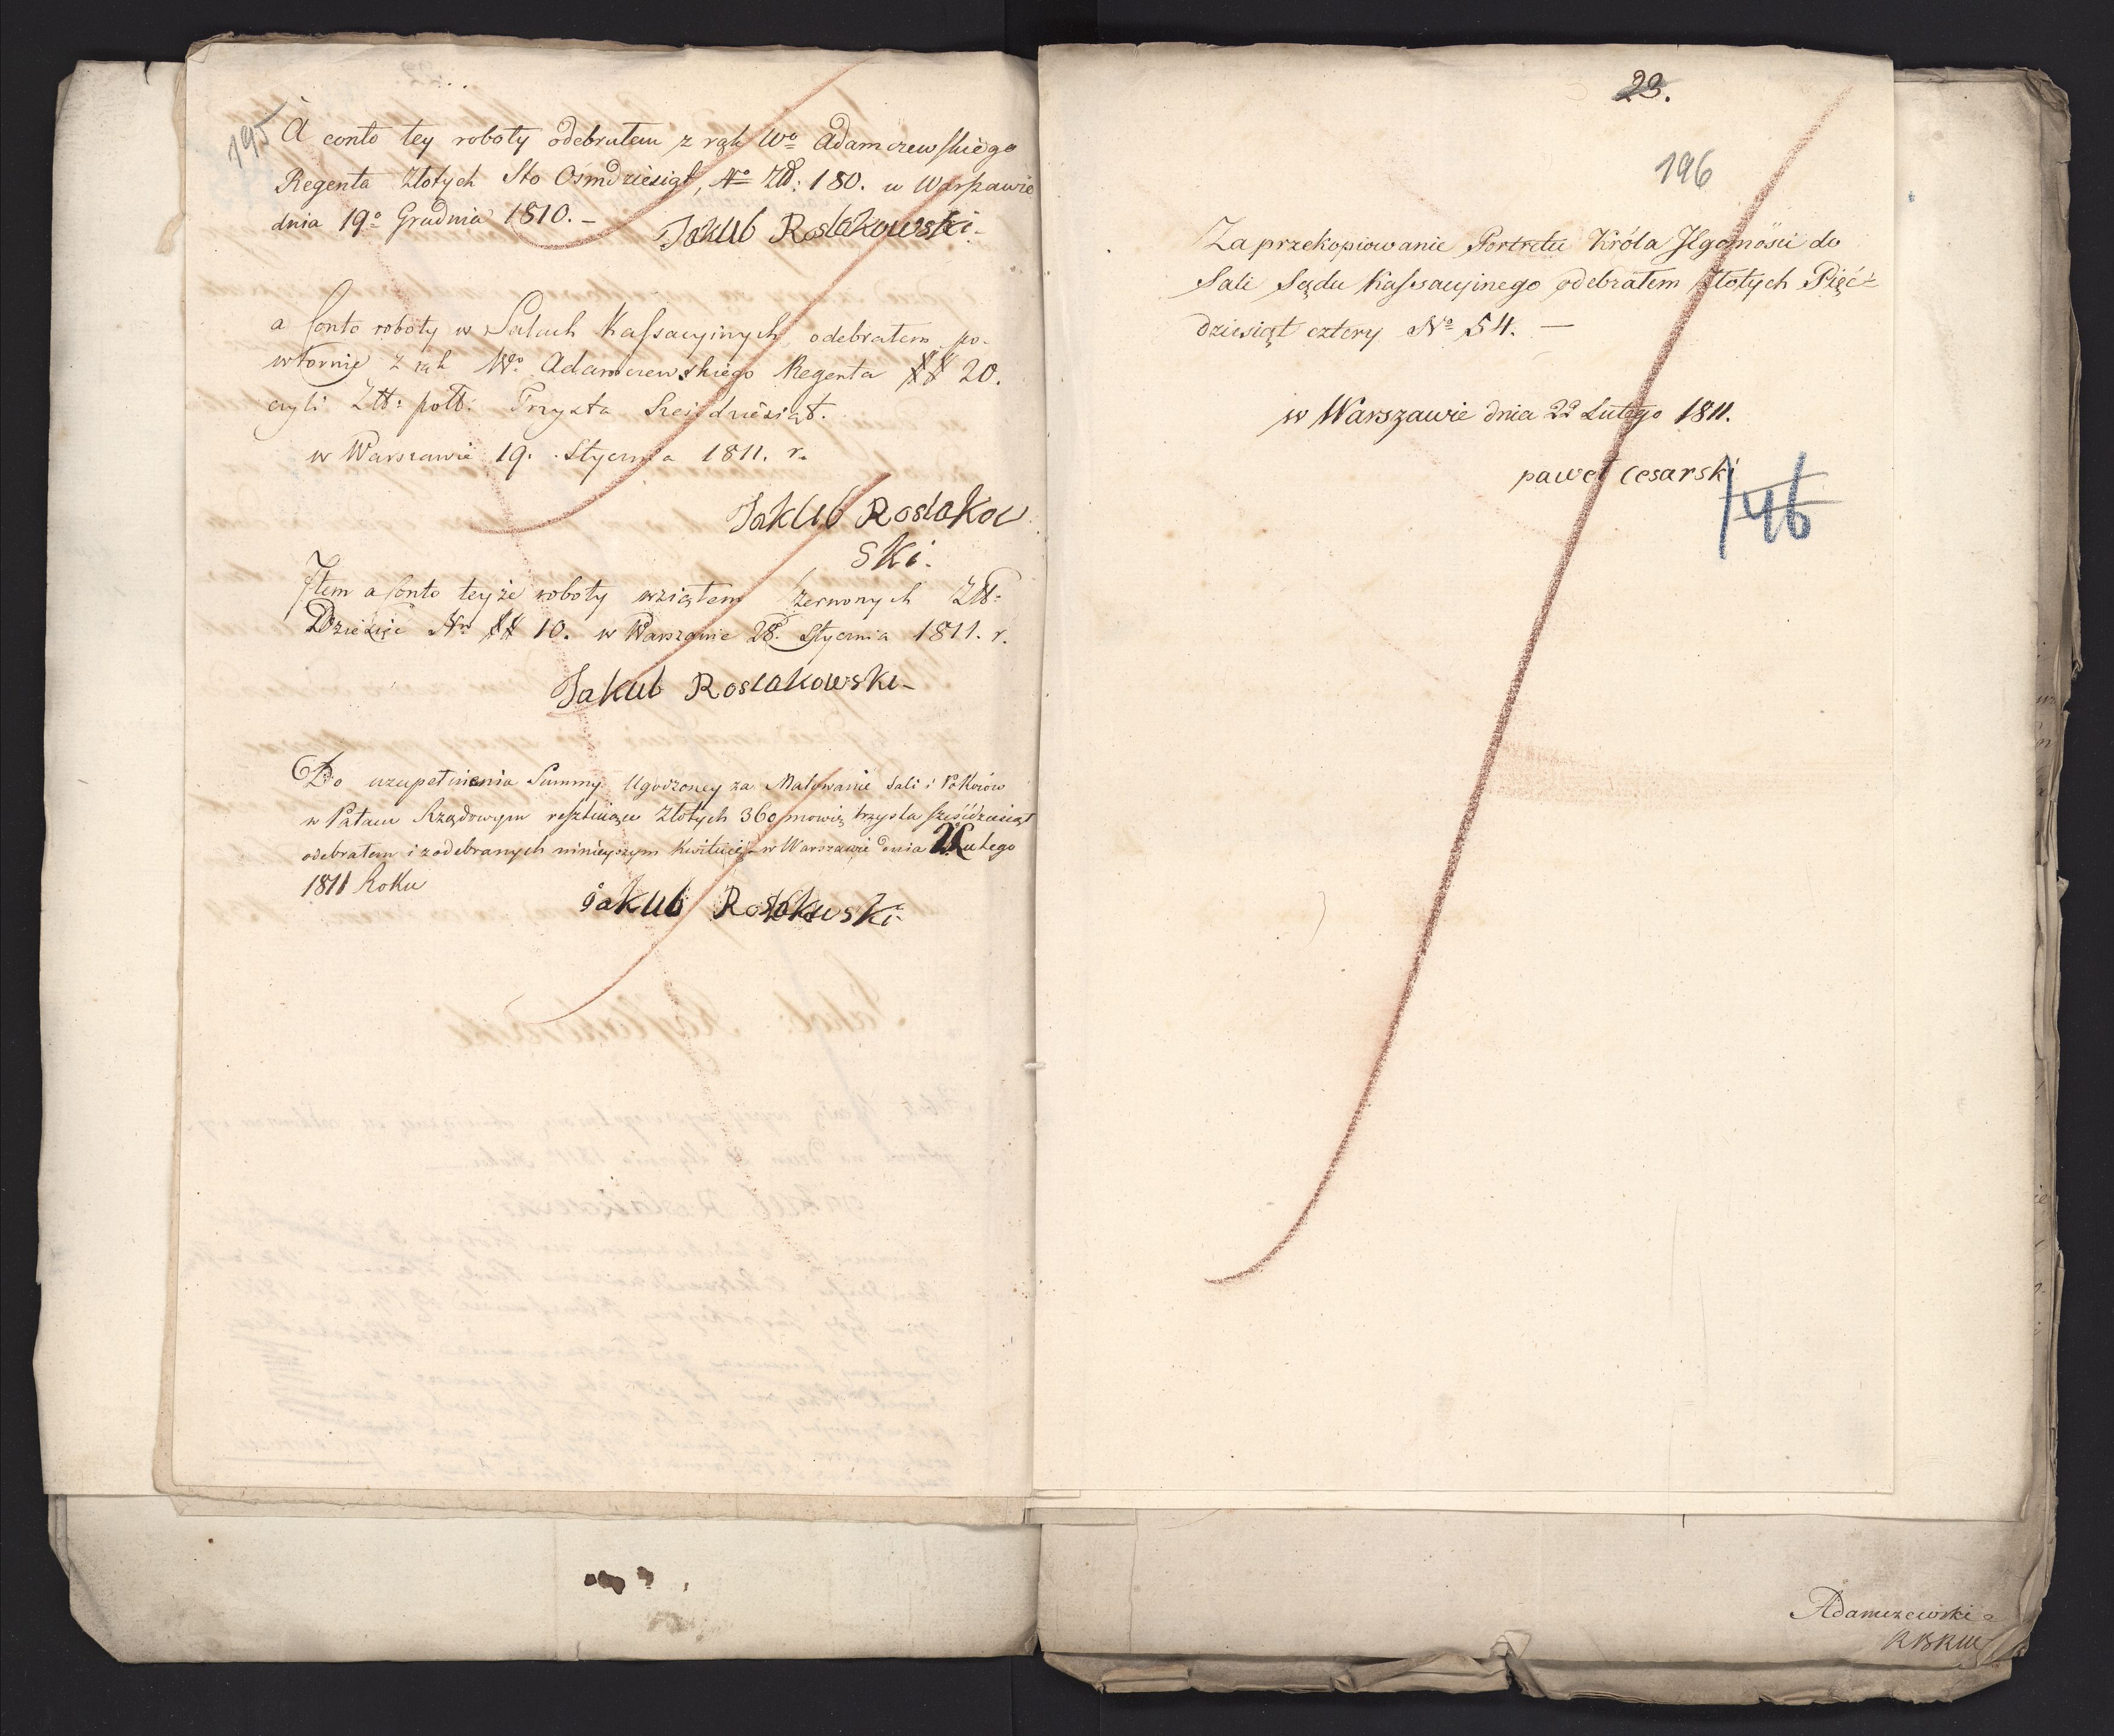 195
A conto tey roboty odebrałem z rąk Wo Adamczewskiego
Regenta Złotych Sto Ośmdziesiąt, No Złł: 180. w Warszawie
dnia 19o Grudnia 1810. –
Jakub Roslakowski
a Conto roboty w Salach Kassacyinych odebrałem po-
wtornie z rąk Wo Adamczewskiego Regenta ## 20.
czyli Złł: poll: Trzysta Sześdziesiąt.
w Warszawie 19. Stycznia 1811. r.
Jakub Roslakow
ski.
Item a Conto teyże roboty wziąłem Czerwonych Złł:
Dziesięć No ## 10. w Warszawie 28. Stycznia 1811. r.
Jakub Roslakowski
Do uzupełnienia Summy Ugodzoney za Malowanie Sali i Pokoiów
w Pałacu Rządowym resztuiące Złotych 360 mowię trzysta sześćdziesiąt
odebrałem i z odebranych ninieyszym kwituię w Warszawie dnia Lutego
1811 Roku
Jakub Roslakowski
23.
196
Za przekopiowanie Portretu Króla Jegomości do
Sali Sądu Kassacyinego odebrałem Złotych Pięć-
dziesiąt cztery No 54. —
w Warszawie dnia 22 Lutego 1811.
paweł Cesarski
146
Adamczewski